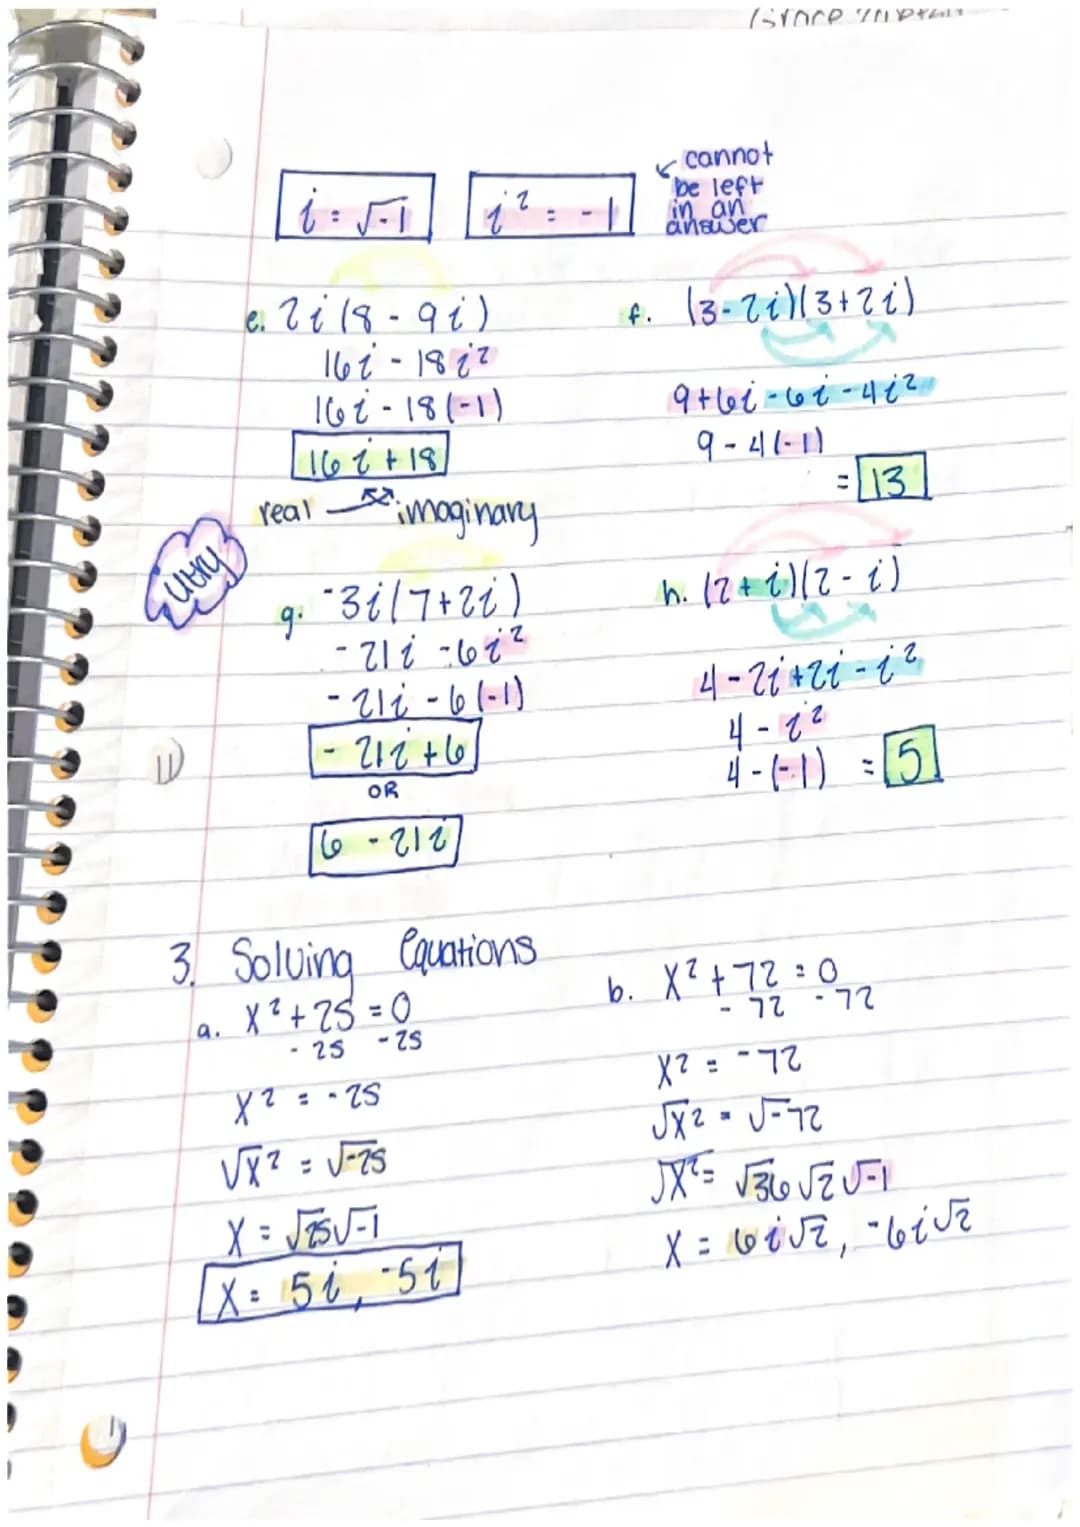 i = √-1
i² = -1
cannot
be left
in an
answer
e. 2i(8 - 9i)
16i - 18i²
16i - 18(-1)
16i + 18
real imaginary
f. (3-2i)(3+2i)
9+6i-6i-4i²
9 - 4(-1)
= 13
g. -3i(7+2i)
-21i -6i²
-21i - 6(-1)
-21i + 6
OR
6 - 21i
h. (2+i)(2-i)
4-2i+2i-i²
4 - i²
4-(-1) = 5
3. Solving Equations
a. x²+25=0
-25 -25
x² = -25
√x² = √-25
x = √25√-1
x = 5i, -5i
b. x²+72=0
-72 -72
x² = -72
√x² = √-72
√x² = √36√2√-1
x = 6i√2, -6i√2